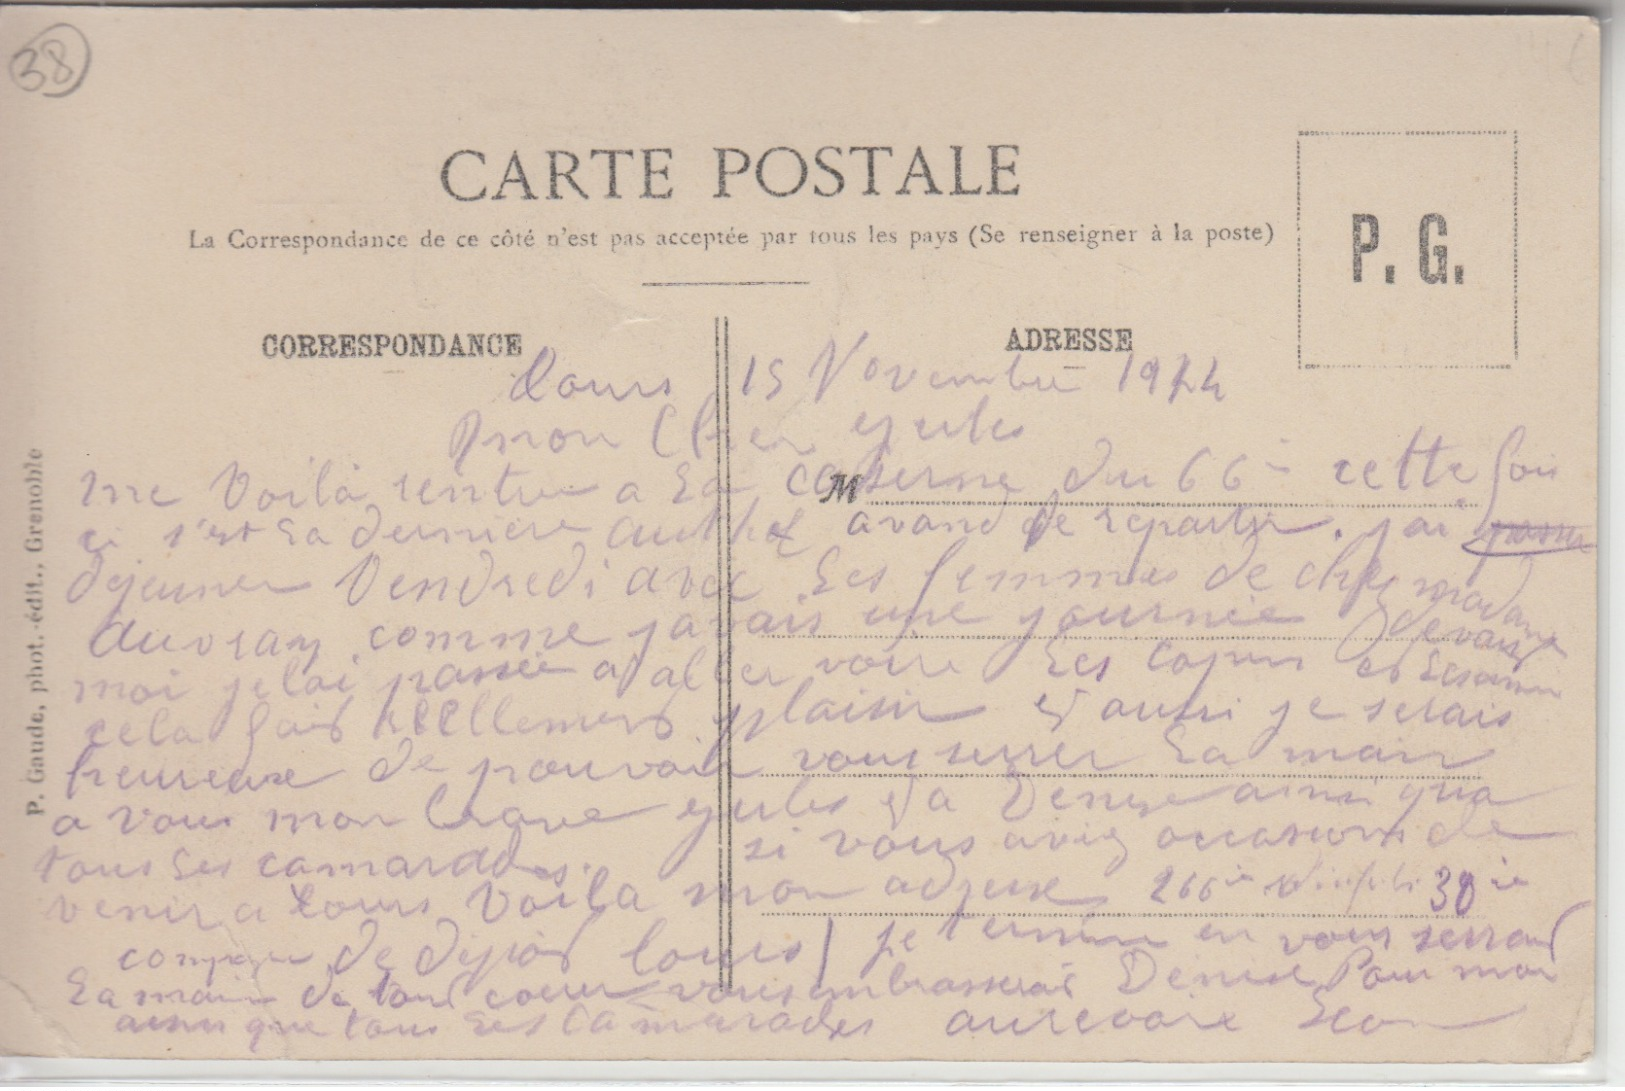 38
CARTE POSTALE
La Correspondance de ce côté n'est pas acceptée par tous les pays (Se renseigner à la poste)
P. G.
CORRESPONDANCE
ADRESSE
P. Gaude, phot.-édit., Grenoble
M
Tours 15 Novembre 1914
Mon Cher Jules
me Voilà rentre a La caserne du 66 cette fois
ci s'est La derniere avand de repartir. jai
dejeuner Vendredi avec Les femmes de chez madame
Auvray comme javais une journée devant
moi je lai passée a aller voire Les Copin et
cela faid reellemend plaisir et aussi je serais
heureuse de pouvoir vous serrer La main
a vous mon brave Jules et a Denise ainsi qua
tous Les camarades. si vous aviez occasions de
venir a Tours Voila mon adresse 266 38
compagnie de dépod Tours je termine en vous serrand
La main de toud coeur vous embrasserais Denise Pour moi
ainsi que tous Les Camarades aurevoire Leon